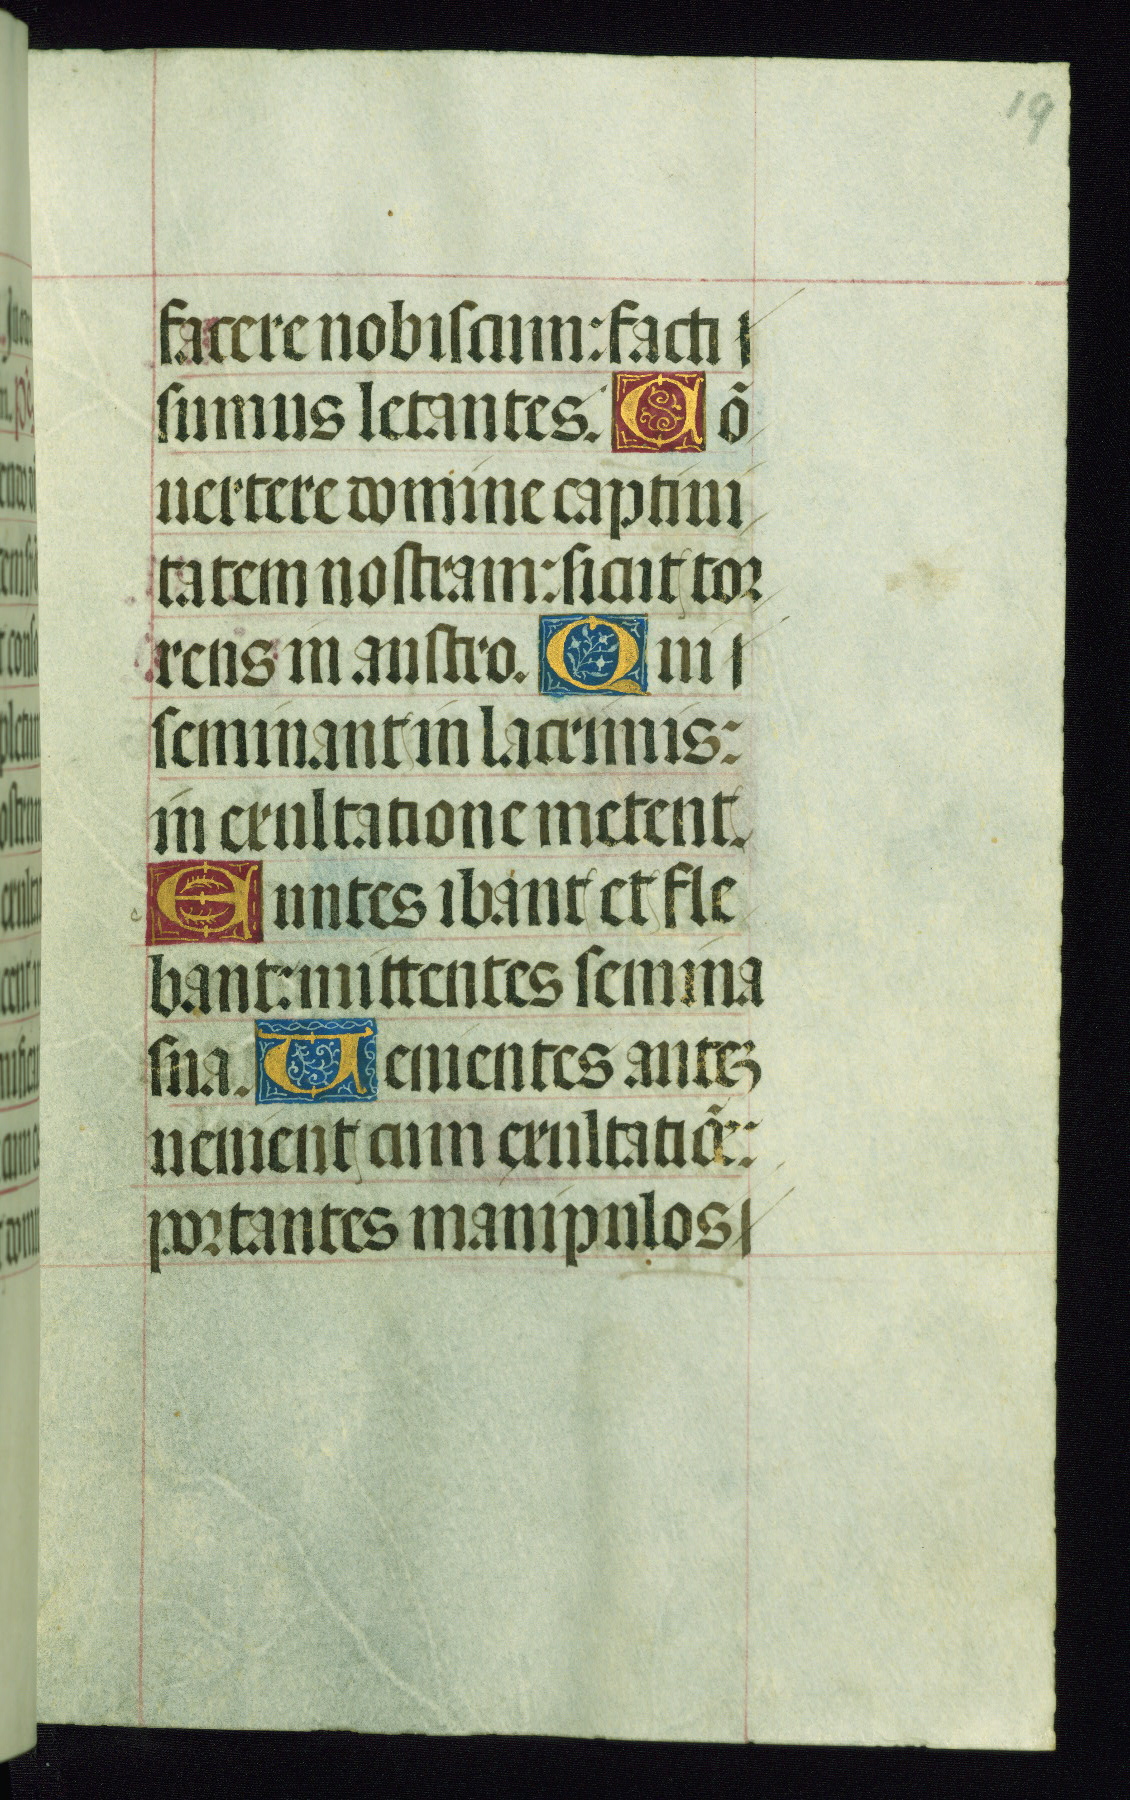 19
facere nobiscum: facti
sumus letantes. Cō
uertere domine captiui
tatem nostram: sicut tor
rens in austro. Qui
seminant in lacrimis:
in exultatione metent.
Euntes ibant et fle
bant: mittentes semina
sua. Uenientes autēz
uenient cum exultatiōe:
portantes manipulos